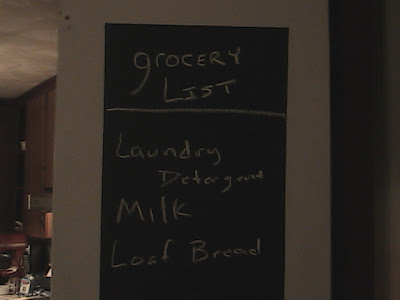 grocery
List
Laundry
Detergent
Milk
Loaf Bread